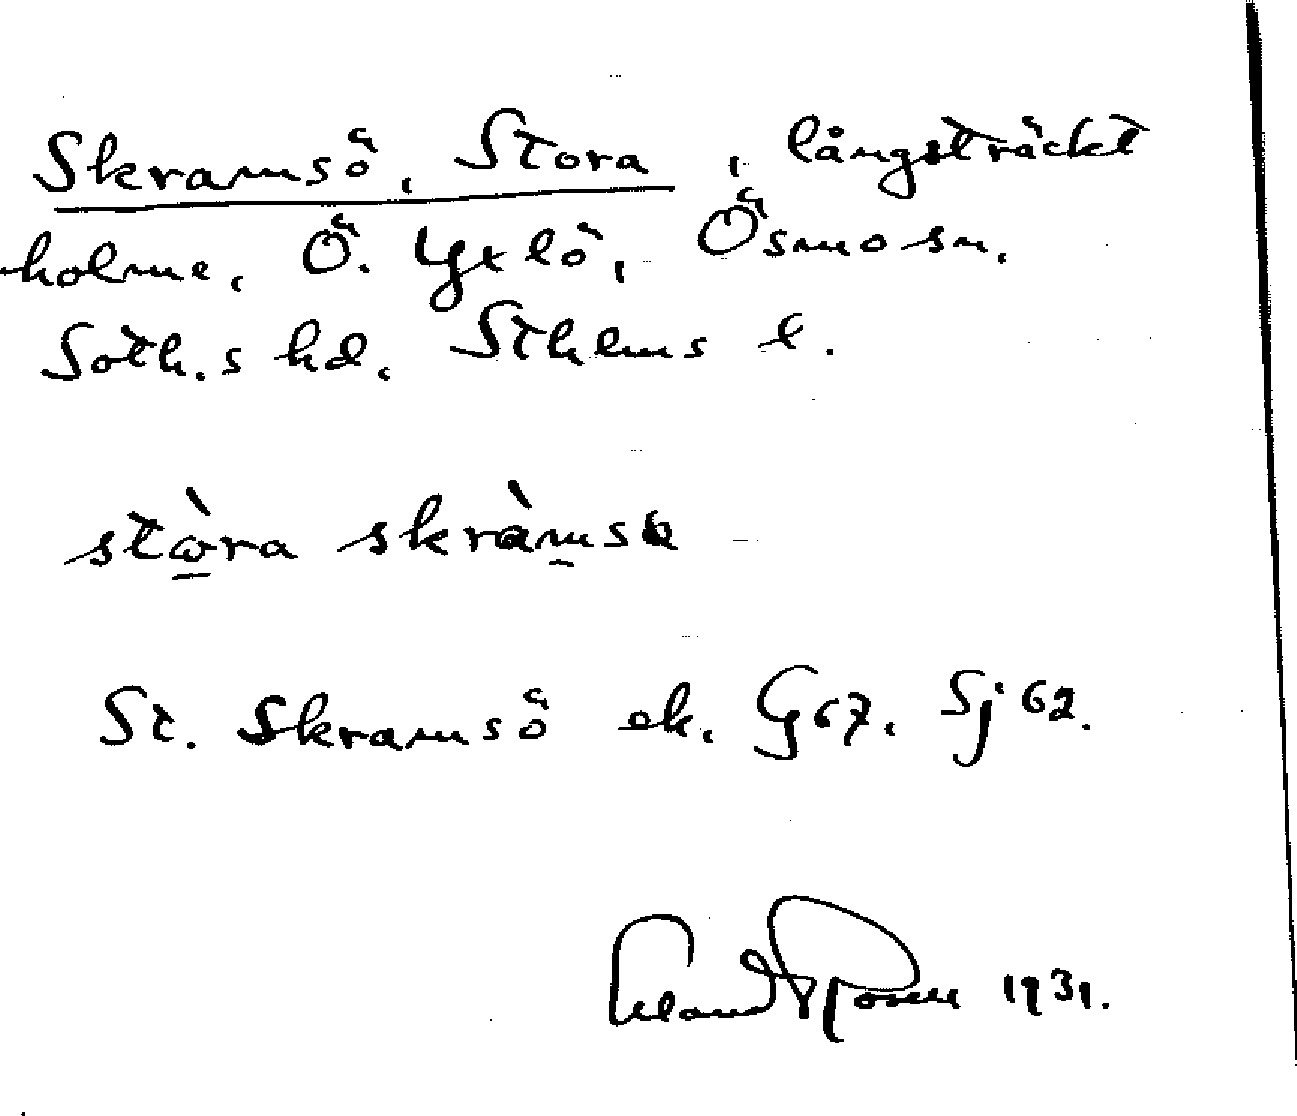 Skramsö, Stora, långsträckt
holme, Ö. Yxlö, Ösmo sn.
Soth.s hd. Sthlms l.
stòra skràmsk
St. Skramsö ek. G67. Sj62.
1931.